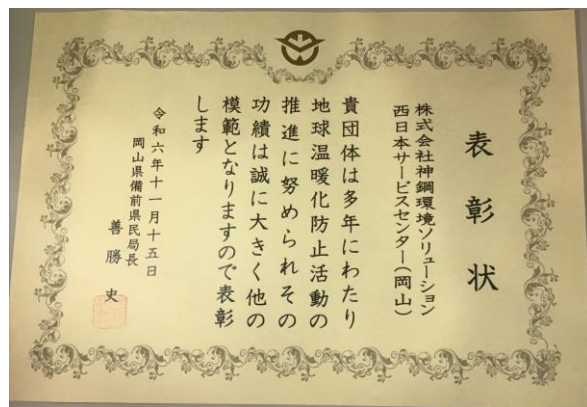 表彰状
株式会社神鋼環境ソリューション
西日本サービスセンター(岡山)
貴団体は多年にわたり
地球温暖化防止活動の
推進に努められその
功績は誠に大きく他の
模範となりますので表彰
します
令和六年十一月十五日
岡山県備前県民局長
善勝史